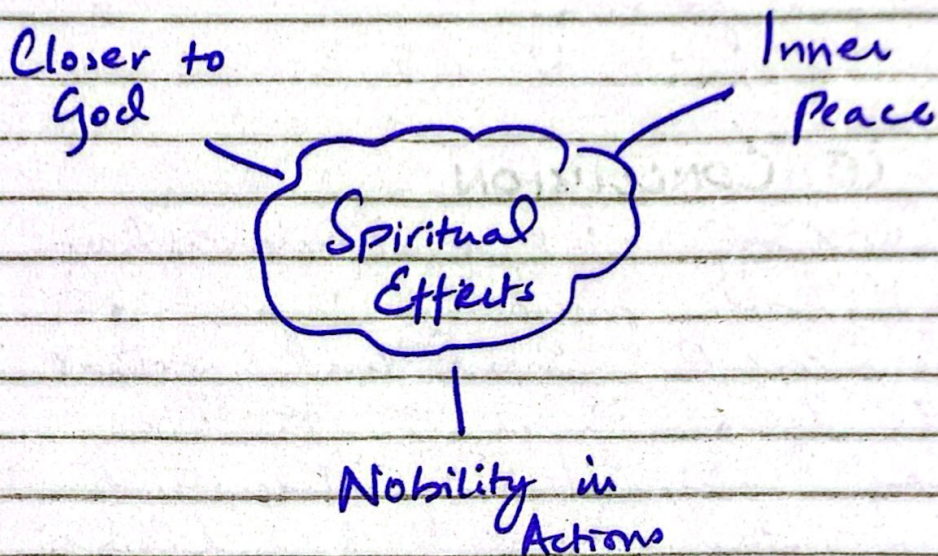 Closer to
God
Inner
Peace
Spiritual
Effects
Nobility in
Actions